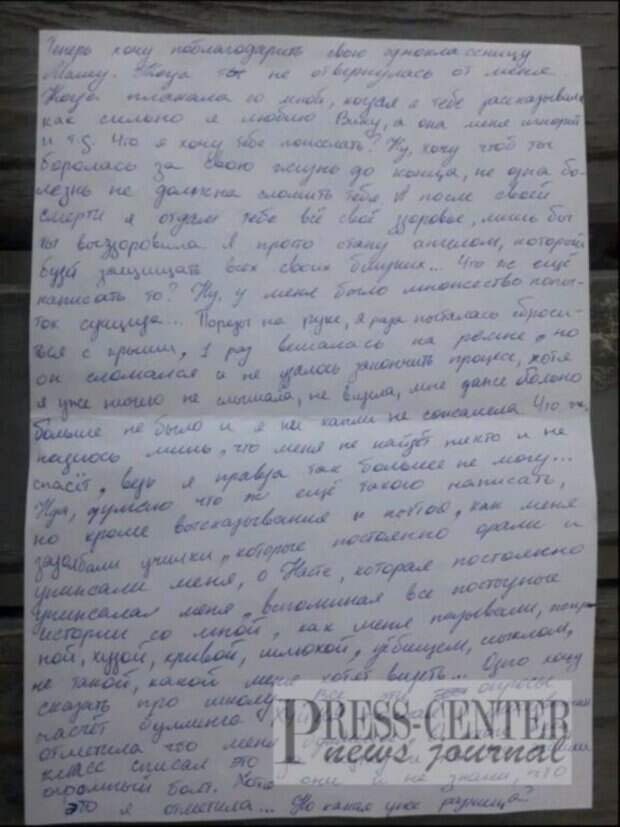 Теперь хочу поблагодарить свою одноклассницу
Машу. Тогда ты не отвернулась от меня
Тогда плакала со мной, когда я тебе рассказывала
как сильно я люблю Вику, а она меня игнорит
и т.д. Что я хочу тебе пожелать? Ну, хочу чтоб ты
боролась за свою жизнь до конца, не одна бо-
лезнь не должна сломить тебя. А после своей
смерти я отдам тебе всё своё здоровье, лишь бы
ты выздоровила. Я просто стану ангелом, который
будет защищать всех своих близких... Что же ещё
написать то? Ну, у меня было множество попы-
ток суицида... Порезы на руке, я раза пыталась сброси-
ться с крыши, 1 раз вешалась на ремне, но
он сломался и не удалось закончить процесс, хотя
я уже ничего не слышала, не видела, мне даже больно
больше не было и я ни капли не сожалела. Что ж,
надеюсь лишь, что меня не найдёт никто и не
спасёт, ведь я правда так больше не могу...
Нда, думаю что же ещё такого написать,
но кроме высказывания о том, как меня
задолбали училки, которые постоянно орали и
унижали меня, о Нате, которая постоянно
унижала меня, вспоминая все постыдные
истории со мной, как меня называли,
ной, худой, кривой, шлюхой, уёбищем,
не такой, какой меня хотят видеть... Одно хочу
сказать про школу. Все эти опросы
насчёт буллинга
отметила что меня
класс списал это
огромный болт. Хотя они и не знали, что
это я отметила... Но какая уже разница?
PRESS-CENTER
news journal